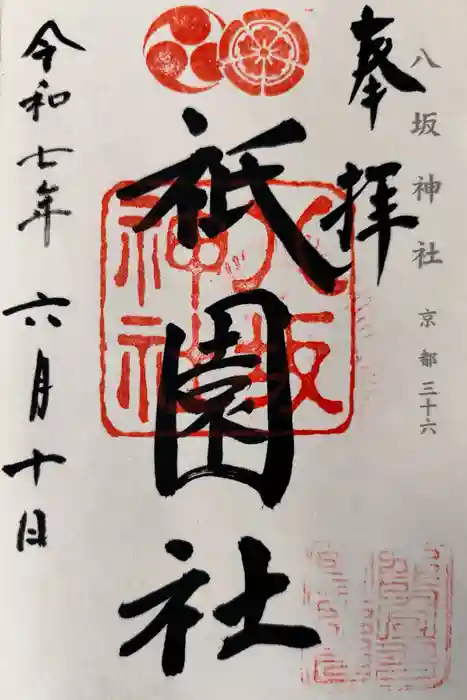 八坂神社 京都三十六
奉拝
祇園社
八坂神社
令和七年 六月十日